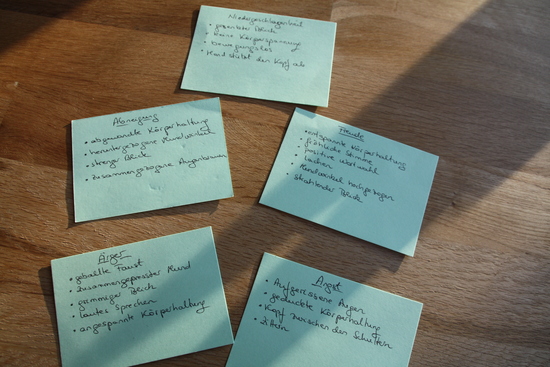 Niedergeschlagenheit
• gesenkter Blick
• keine Körperspannung
• bewegungslos
• Hand stützt den Kopf ab
Abneigung
• abgewandte Körperhaltung
• heruntergezogene Mundwinkel
• strenger Blick
• zusammengezogene Augenbrauen
Freude
• entspannte Körperhaltung
• fröhliche Stimme
• positive Wortwahl
• Lachen
• Mundwinkel hochgezogen
• strahlender Blick
Ärger
• geballte Faust
• zusammengepresster Mund
• grimmiger Blick
• lautes Sprechen
• angespannte Körperhaltung
Angst
• Aufgerissene Augen
• geduckte Körperhaltung
• Kopf zwischen den Schultern
• Zittern